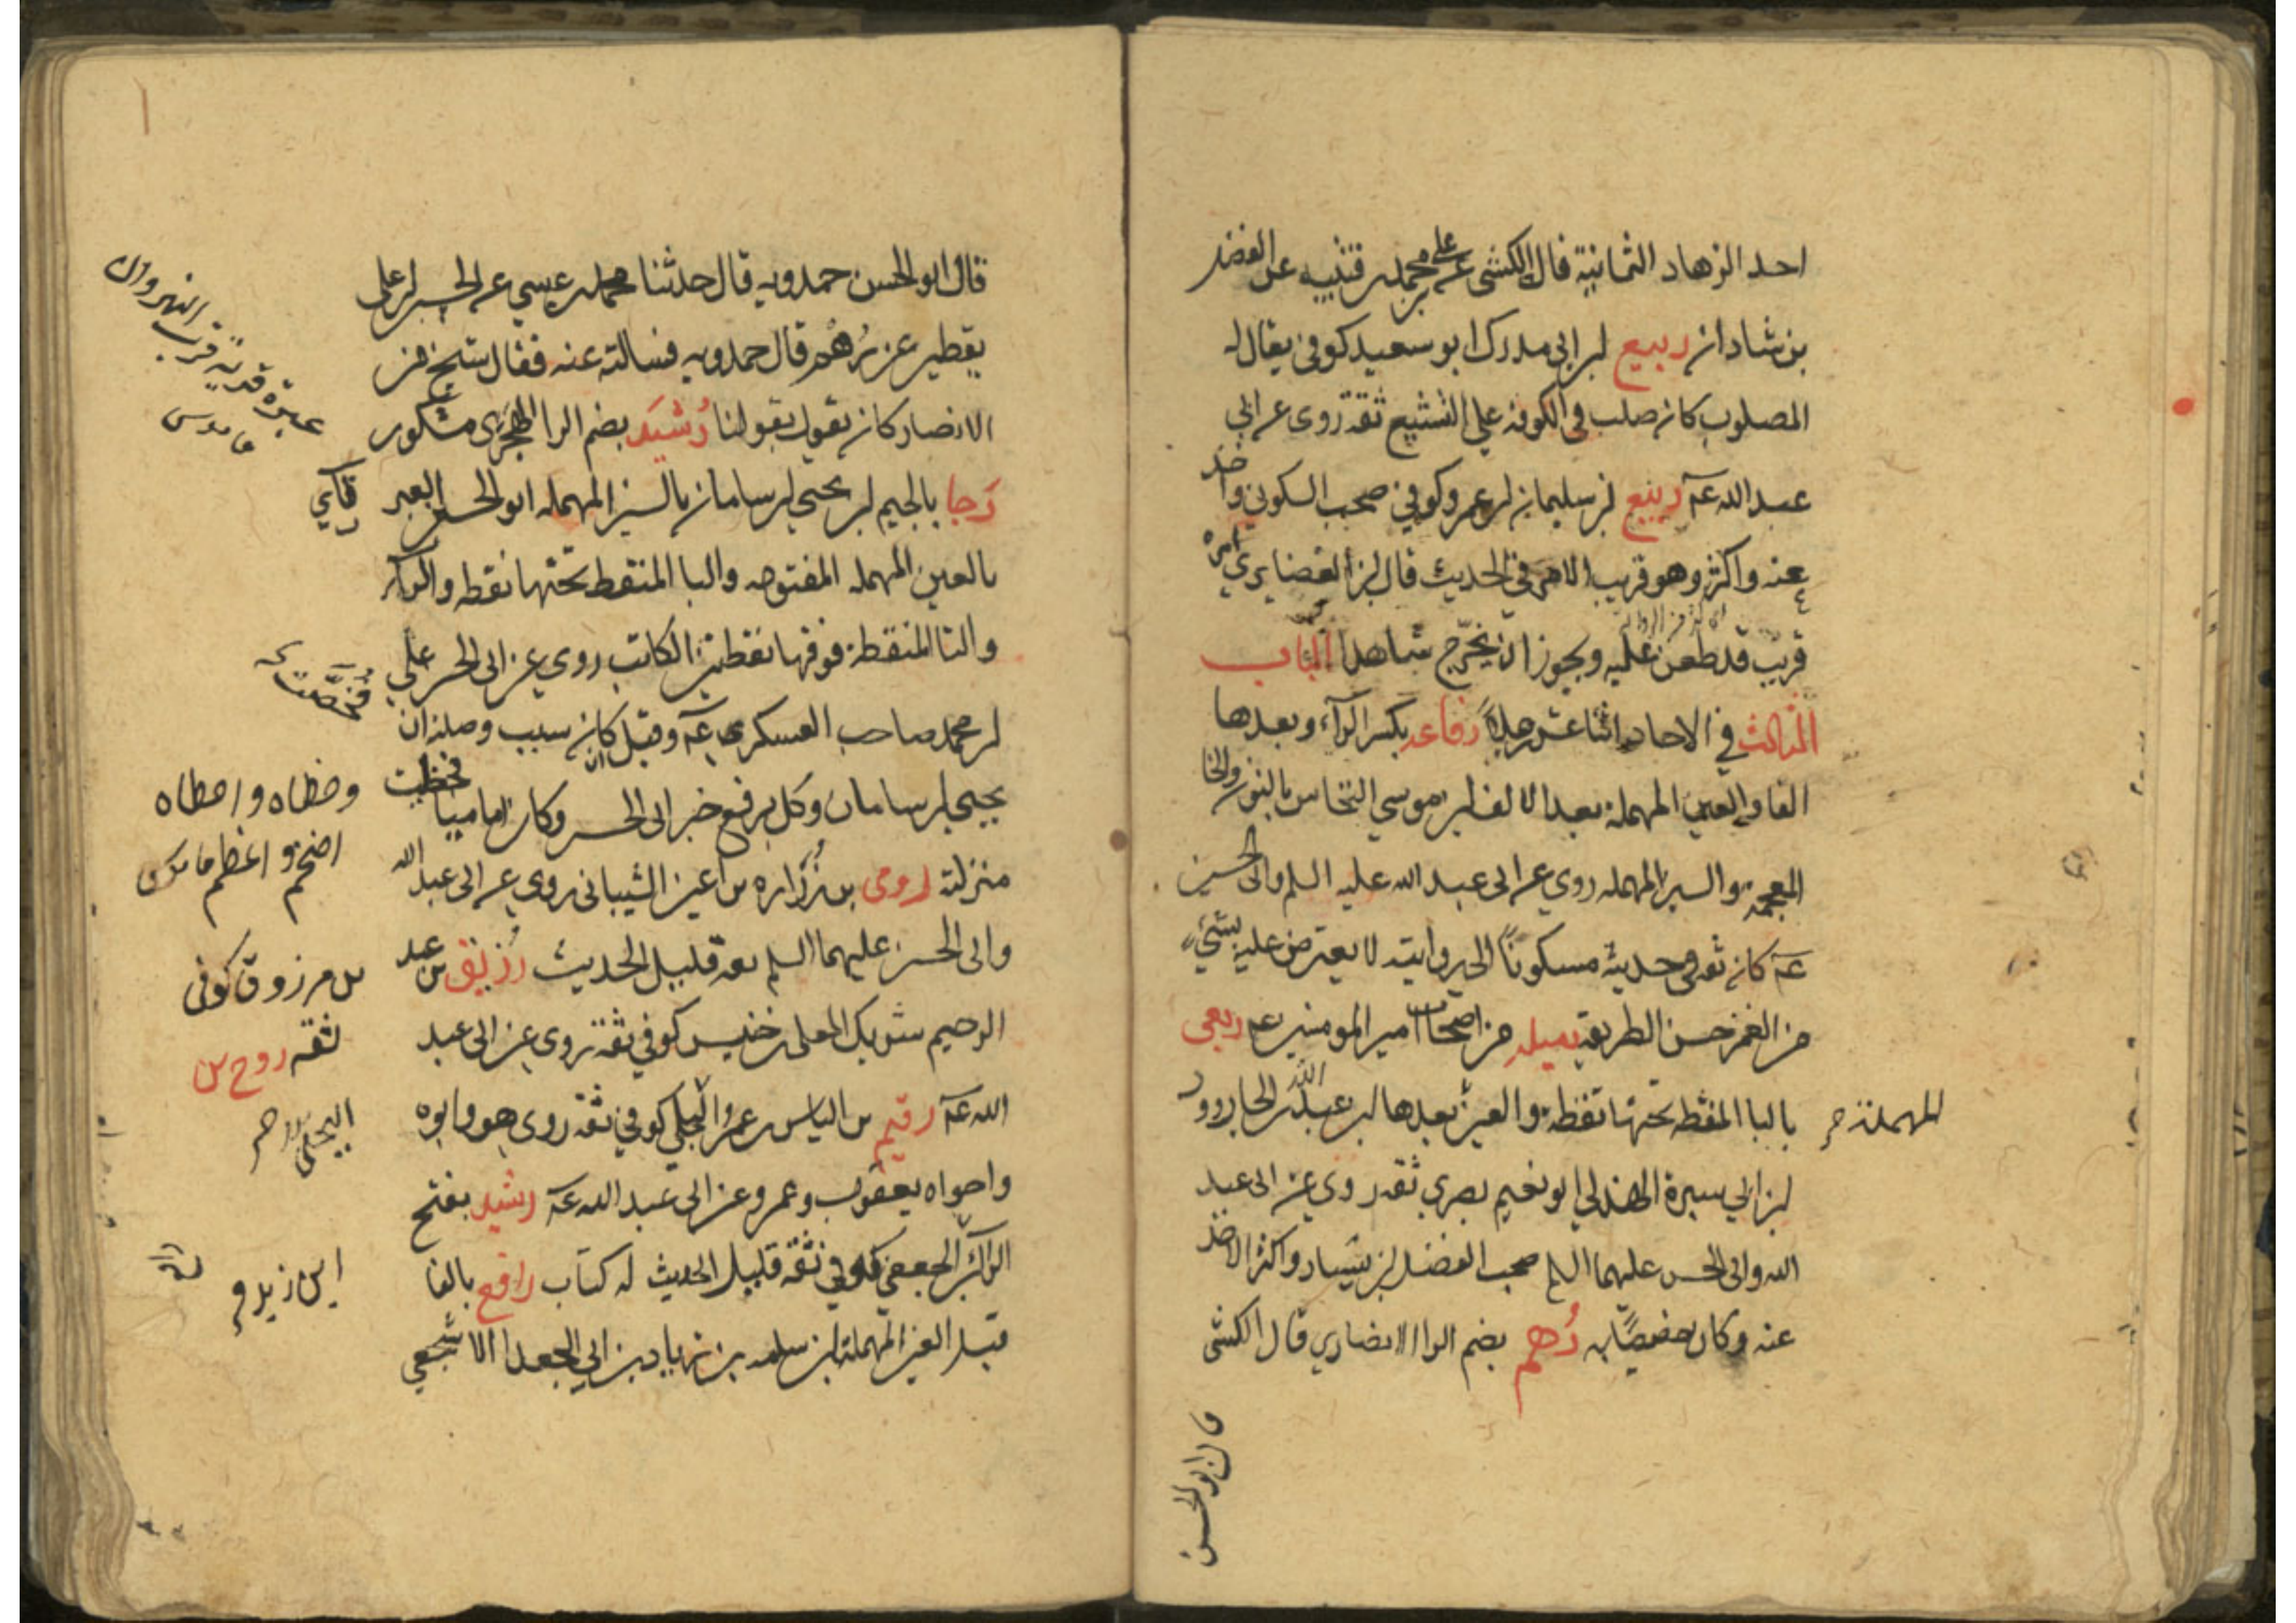 احد الزهاد الثمانية قال الكشى عن على بن محمد بن قتيبه عن الفضل
بن شاذان ربيع بن ابى مدرك ابو سعيد كوفى يقال له
المصلوب كان صلب فى الكوفه على التشيع ثقة روى عن ابى
عبد الله عه ربيع بن سليمان بن عمرو كوفى صحب السكونى واخذ
عنه واكثر وهو قريب الامر فى الحديث قال ابن الغضايرى امره
قريب قد طعن عليه ويجوز ان يخرج شاهدا الباب
الثالث فى الاحاد اثنا عشر رجلا رفاعه بكسر الراء وبعدها
الفا والعين المهملة بعد الالف بن موسى النخاس بالنون والخا
المعجمة والسين المهمله روى عن ابى عبد الله عليه السلم وابى الحسن
عه كان ثقه فى حديثه مسكونا الى روايته لا يعترض عليه بشىء
من الغمز حسن الطريقه رميله من اصحاب امير المومنين عه ربعى
بالبا المنقطه تحتها نقطة والعين بعدها بن عبد الله بن الجارود
المهملة
بن ابى سبرة الهذلى ابو نعيم بصرى ثقه روى عن ابى عبد
الله وابى الحسن عليهما السلم صحب الفضل بن يسار واكثر الاخذ
عنه وكان خصيصا به رهم بضم الرا الانصارى قال الكشى
قال ابو الحسن
قال ابو الحسن حمدويه قال حدثنا محمد بن عيسى عن الحسن بن على
يقطين عن رهم قال حمدويه فسالته عنه فقال شيخ من
الانصار كان يقول بقولنا رشيد بضم الرا الهجرى مشكور
رجا بالجيم بن يحيى بن سامان بالسين المهمله ابو الحسين العبر
تاى
بالعين المهمله المفتوحه والبا المنقطه تحتها نقطه والراء
والتا المنقطة فوقها نقطتين الكاتب روى عن ابى الحسن على
بن محمد صاحب العسكر عه وقيل كان سبب وصلته ان
يحيى بن سامان وكل برفع خبر ابى الحسن وكان اماميا فحظيت
منزلته رومى بن زراره بن اعين الشيبانى روى عن ابى عبد الله
وابى الحسن عليهما السلم ثقه قليل الحديث رزيق بن عبد
الرحيم شريك المعلى بن خنيس كوفى ثقة روى عن ابى عبد
الله عه رقيم بن الياس بن عمرو البجلى كوفى ثقه روى هو وابوه
واخواه يعقوب وعمرو عن ابى عبد الله عه رشيد بفتح
الراء الجعفى كوفى ثقة قليل الحديث له كتاب رافع بالفا
قبل العين المهملة بن سلمه بن زياد بن ابى الجعد الاشجعى
عبرة قرية قرب النهروان
قاموس
بن مرزوق كوفى
ثقه روح بن
ابن زيد